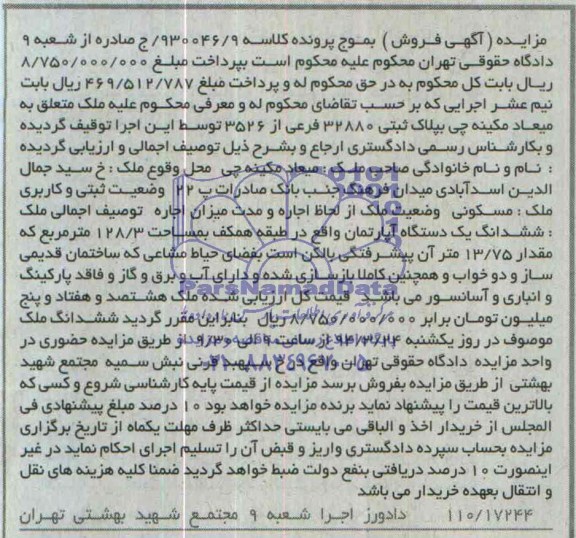 مزایده ( آگهی فروش ) بموج پرونده کلاسه ۹۳۰۰۴۶/۹/ ج صادره از شعبه ۹
دادگاه حقوقی تهران محکوم علیه محکوم است بپرداخت مبلغ ۸/۷۵۰/۰۰۰/۰۰۰
ریال بابت کل محکوم به در حق محکوم له و پرداخت مبلغ ۴۶۹/۵۱۲/۷۸۷ ریال بابت
نیم عشر اجرایی که بر حسب تقاضای محکوم له و معرفی محکوم علیه ملک متعلق به
میعاد مکینه چی بپلاک ثبتی ۳۲۸۸۰ فرعی از ۳۵۲۶ توسط این اجرا توقیف گردیده
و بکارشناس رسمی دادگستری ارجاع و بشرح ذیل توصیف اجمالی و ارزیابی گردیده
: نام و نام خانوادگی صاحب ملک : میعاد مکینه چی محل وقوع ملک : خ سید جمال
الدین اسدآبادی میدان فرهنگ جنب بانک صادرات پ ۲۲ وضعیت ثبتی و کاربری
ملک : مسکونی وضعیت ملک از لحاظ اجاره و مدت میزان اجاره توصیف اجمالی ملک
: ششدانگ یک دستگاه آپارتمان واقع در طبقه همکف بمساحت ۱۲۸/۳ مترمربع که
مقدار ۱۳/۷۵ متر آن پیشرفتگی بالکن است بفضای حیاط مشاعی که ساختمان قدیمی
ساز و دو خواب و همچنین کاملا بازسازی شده و دارای آب و برق و گاز و فاقد پارکینگ
و انباری و آسانسور می باشد قیمت کل ارزیابی شده ملک هشتصد و هفتاد و پنج
میلیون تومان برابر ۸/۷۵۰/۰۰۰/۰۰۰ ریال بنابراین مقرر گردید ششدانگ ملک
موصوف در روز یکشنبه ۹۴/۳/۲۴ از ساعت ۹ الی ۹/۳۰ از طریق مزایده حضوری در
واحد مزایده دادگاه حقوقی تهران واقع در خ سپهبد قرنی نبش سمیه مجتمع شهید
بهشتی از طریق مزایده بفروش برسد مزایده از قیمت پایه کارشناسی شروع و کسی که
بالاترین قیمت را پیشنهاد نماید برنده مزایده خواهد بود ۱۰ درصد مبلغ پیشنهادی فی
المجلس از خریدار اخذ و الباقی می بایستی حداکثر ظرف مهلت یکماه از تاریخ برگزاری
مزایده بحساب سپرده دادگستری واریز و قبض آن را تسلیم اجرای احکام نماید در غیر
اینصورت ۱۰ درصد دریافتی بنفع دولت ضبط خواهد گردید ضمنا کلیه هزینه های نقل
و انتقال بعهده خریدار می باشد
۱۱۰/۱۷۲۴۴ دادورز اجرا شعبه ۹ مجتمع شهید بهشتی تهران
ParsNamadData